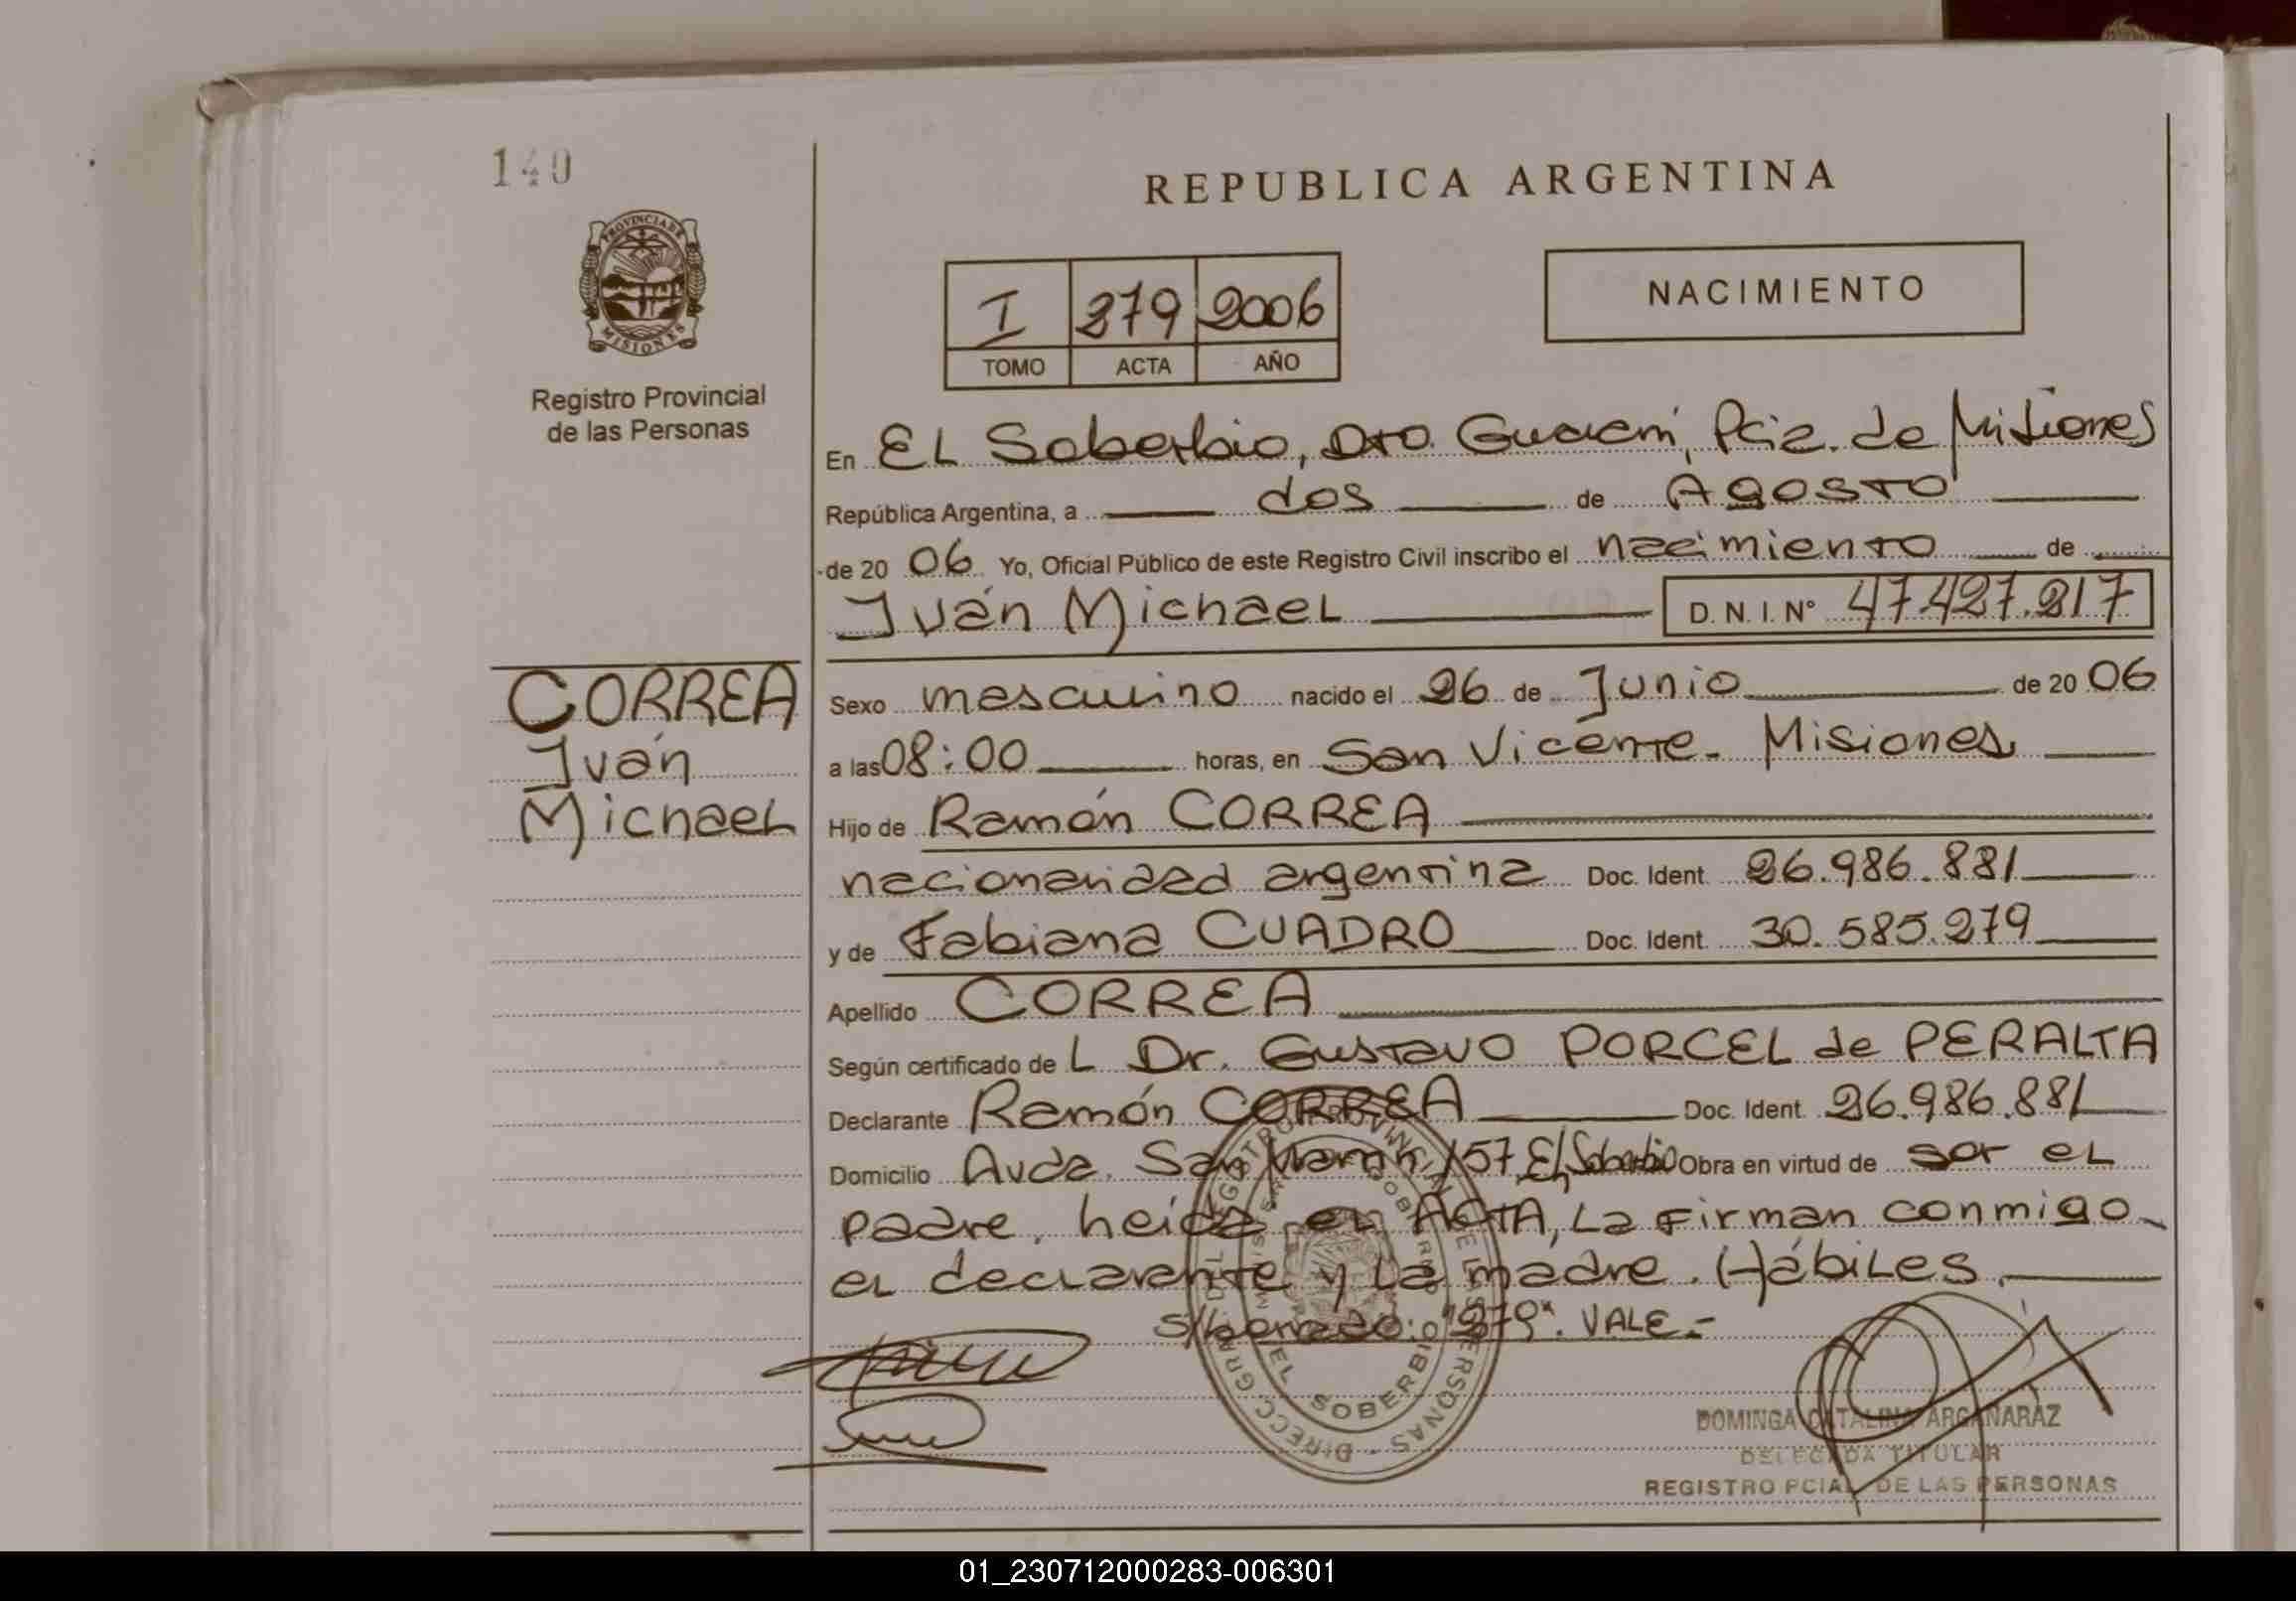 140
REPUBLICA ARGENTINA
PROVINCIA DE
MISIONES
Registro Provincial
de las Personas
I 279 2006
TOMO ACTA AÑO
NACIMIENTO
En EL Soberbio, Dto. Guaraní, Pcia. de Misiones
República Argentina, a dos de Agosto
de 20 06 Yo, Oficial Público de este Registro Civil inscribo el nacimiento de
Iván Michael D.N.I. Nº 47.427.217
CORREA
Iván
Michael
Sexo masculino nacido el 26 de Junio de 20 06
a las 08:00 horas, en San Vicente - Misiones
Hijo de Ramón CORREA
nacionalidad argentina Doc. Ident. 26.986.881
y de Fabiana CUADRO Doc. Ident. 30.585.279
Apellido CORREA
Según certificado de L Dr. Gustavo PORCEL de PERALTA
Declarante Ramón CORREA Doc. Ident. 26.986.881
Domicilio Avda. San Martín 157 El Soberbio Obra en virtud de ser el
padre. heida el ACTA, La Firman conmigo
el declarante y La madre. Hábiles.
s/borrado: "279". VALE.-
EL SOBERBIO
DOMINGA CATALINA ARGAÑARAZ
DELEGADA TITULAR
REGISTRO PCIAL DE LAS PERSONAS
01_230712000283-006301